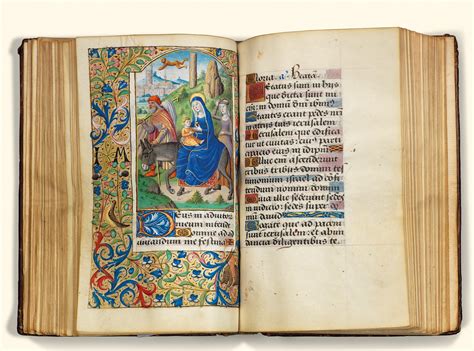 I M
Deus in adiutor
meum intende
Domine ad ad
iuuandum me festina
Gloria. a. Beata
Letatus sum in hiis
que dicta sunt mi
chi in domū dn̄i ibim̄
Stantes erant pedes
in atriis tuis ierusalem
Ierusalem que edifica
tur ut ciuitas cuius
participatio eius in idipm̄
Illuc enim ascenderūt
tribus tribus domini tes
timonium israel ad confi
tendum nomini domini
Quia illic sederunt sedes
in iudicio sedes super do
mum dauid
Rogate que ad pacem
sunt ierusalem et abun
dancia diligentibus te